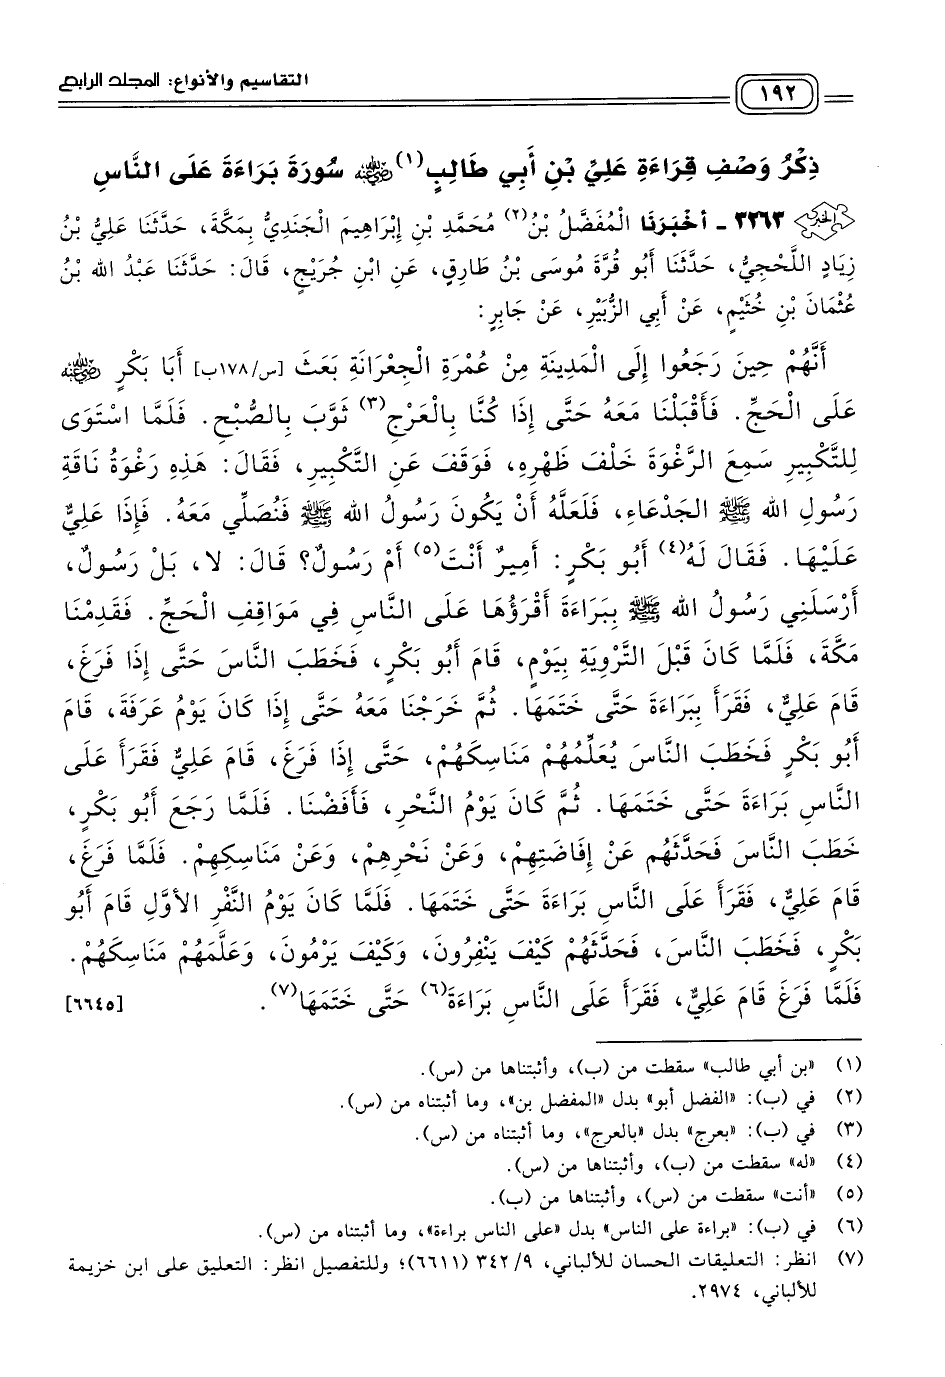 ١٩٢
التقاسيم والأنواع: المجلد الرابع
ذِكْرُ وَصْفِ قِرَاءَةِ عَلِيِّ بْنِ أَبِي طَالِبٍ(١) ﵁ سُورَةَ بَرَاءَةَ عَلَى النَّاسِ
٣٢٦٣ - أخْبَرَنَا الْمُفَضَّلُ بْنُ(٢) مُحَمَّدِ بْنِ إِبْرَاهِيمَ الْجَنَدِيُّ بِمَكَّةَ، حَدَّثَنَا عَلِيُّ بْنُ
زِيَادٍ اللَّحْجِيُّ، حَدَّثَنَا أَبُو قُرَّةَ مُوسَى بْنُ طَارِقٍ، عَنِ ابْنِ جُرَيْجٍ، قَالَ: حَدَّثَنَا عَبْدُ الله بْنُ
عُثْمَانَ بْنِ خُثَيْمٍ، عَنْ أَبِي الزُّبَيْرِ، عَنْ جَابِرٍ:
أَنَّهُمْ حِينَ رَجَعُوا إِلَى الْمَدِينَةِ مِنْ عُمْرَةِ الْجِعْرَانَةِ بَعَثَ [س/١٧٨ب] أَبَا بَكْرٍ ﵁
عَلَى الْحَجِّ. فَأَقْبَلْنَا مَعَهُ حَتَّى إِذَا كُنَّا بِالْعَرْجِ(٣) ثَوَّبَ بِالصُّبْحِ. فَلَمَّا اسْتَوَى
لِلتَّكْبِيرِ سَمِعَ الرَّغْوَةَ خَلْفَ ظَهْرِهِ، فَوَقَفَ عَنِ التَّكْبِيرِ، فَقَالَ: هَذِهِ رَغْوَةُ نَاقَةِ
رَسُولِ الله ﷺ الْجَدْعَاءِ، فَلَعَلَّهُ أَنْ يَكُونَ رَسُولُ الله ﷺ فَنُصَلِّي مَعَهُ. فَإِذَا عَلِيٌّ
عَلَيْهَا. فَقَالَ لَهُ(٤) أَبُو بَكْرٍ: أَمِيرٌ أَنْتَ(٥) أَمْ رَسُولٌ؟ قَالَ: لا، بَلْ رَسُولٌ،
أَرْسَلَنِي رَسُولُ الله ﷺ بِبَرَاءَةَ أَقْرَؤُهَا عَلَى النَّاسِ فِي مَوَاقِفِ الْحَجِّ. فَقَدِمْنَا
مَكَّةَ، فَلَمَّا كَانَ قَبْلَ التَّرْوِيَةِ بِيَوْمٍ، قَامَ أَبُو بَكْرٍ، فَخَطَبَ النَّاسَ حَتَّى إِذَا فَرَغَ،
قَامَ عَلِيٌّ، فَقَرَأَ بِبَرَاءَةَ حَتَّى خَتَمَهَا. ثُمَّ خَرَجْنَا مَعَهُ حَتَّى إِذَا كَانَ يَوْمُ عَرَفَةَ، قَامَ
أَبُو بَكْرٍ فَخَطَبَ النَّاسَ يُعَلِّمُهُمْ مَنَاسِكَهُمْ، حَتَّى إِذَا فَرَغَ، قَامَ عَلِيٌّ فَقَرَأَ عَلَى
النَّاسِ بَرَاءَةَ حَتَّى خَتَمَهَا. ثُمَّ كَانَ يَوْمُ النَّحْرِ، فَأَفَضْنَا. فَلَمَّا رَجَعَ أَبُو بَكْرٍ،
خَطَبَ النَّاسَ فَحَدَّثَهُم عَنْ إِفَاضَتِهِمْ، وَعَنْ نَحْرِهِمْ، وَعَنْ مَنَاسِكِهِمْ. فَلَمَّا فَرَغَ،
قَامَ عَلِيٌّ، فَقَرَأَ عَلَى النَّاسِ بَرَاءَةَ حَتَّى خَتَمَهَا. فَلَمَّا كَانَ يَوْمُ النَّفْرِ الأَوَّلِ قَامَ أَبُو
بَكْرٍ، فَخَطَبَ النَّاسَ، فَحَدَّثَهُمْ كَيْفَ يَنْفِرُونَ، وَكَيْفَ يَرْمُونَ، وَعَلَّمَهُمْ مَنَاسِكَهُمْ.
فَلَمَّا فَرَغَ قَامَ عَلِيٌّ، فَقَرَأَ عَلَى النَّاسِ بَرَاءَةَ(٦) حَتَّى خَتَمَهَا(٧). [٦٦٤٥]
(١) «بن أبي طالب» سقطت من (ب)، وأثبتناها من (س).
(٢) في (ب): «الفضل أبو» بدل «المفضل بن»، وما أثبتناه من (س).
(٣) في (ب): «بعرج» بدل «بالعرج»، وما أثبتناه من (س).
(٤) «له» سقطت من (ب)، وأثبتناها من (س).
(٥) «أنت» سقطت من (س)، وأثبتناها من (ب).
(٦) في (ب): «براءة على الناس» بدل «على الناس براءة»، وما أثبتناه من (س).
(٧) انظر: التعليقات الحسان للألباني، ٩/ ٣٤٢ (٦٦١١)؛ وللتفصيل انظر: التعليق على ابن خزيمة
للألباني، ٢٩٧٤.